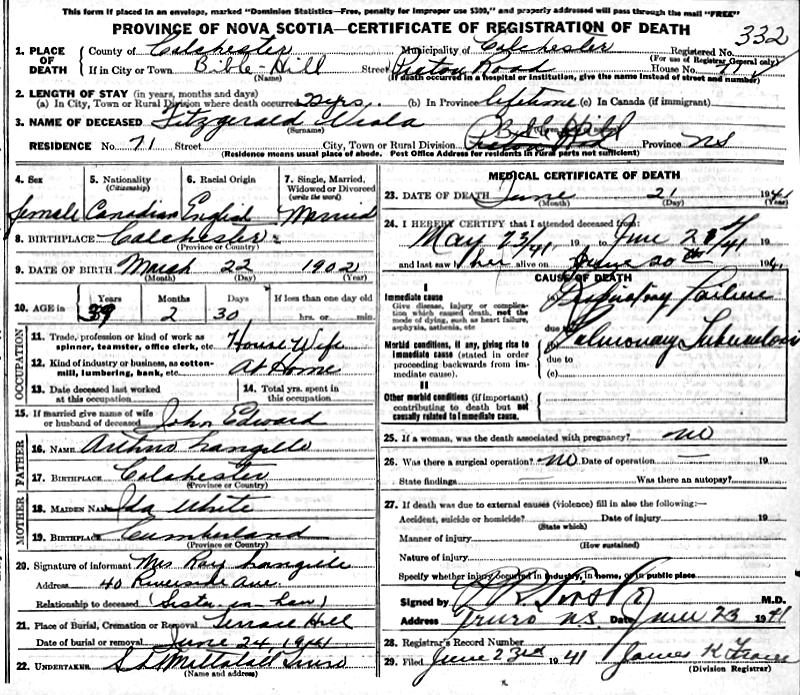 This form if placed in an envelope, marked "Dominion Statistics—Free, penalty for improper use $300," and properly addressed will pass through the mail "FREE"
PROVINCE OF NOVA SCOTIA—CERTIFICATE OF REGISTRATION OF DEATH
332
1. PLACE OF DEATH County of Colchester Municipality of Colchester Registered No.
(For use of Registrar General only)
If in City or Town Bible-Hill Street Picton Road House No. 71
(Name) (If death occurred in a hospital or institution, give the name instead of street and number)
2. LENGTH OF STAY (in years, months and days)
(a) In City, Town or Rural Division where death occurred 22yrs. (b) In Province lifetime (c) In Canada (if immigrant)
3. NAME OF DECEASED Fitzgerald Viola
(Surname)
RESIDENCE No. 71 Street City, Town or Rural Division Bible Hill Picton Road Province NS
(Residence means usual place of abode. Post Office Address for residents in rural parts not sufficient)
4. Sex 5. Nationality (Citizenship) 6. Racial Origin 7. Single, Married, Widowed or Divorced (write the word)
female Canadian English Married
8. BIRTHPLACE Colchester
(Province or Country)
9. DATE OF BIRTH March 22 1902
(Month) (Day) (Year)
10. AGE in Years Months Days If less than one day old
39 2 30 hrs. or min.
OCCUPATION
11. Trade, profession or kind of work as spinner, teamster, office clerk, etc. House Wife
12. Kind of industry or business, as cotton-mill, lumbering, bank, etc. At Home
13. Date deceased last worked at this occupation 14. Total yrs. spent in this occupation
15. If married give name of wife or husband of deceased John Edward
FATHER
16. NAME Arthur Langille
17. BIRTHPLACE Colchester
(Province or Country)
MOTHER
18. MAIDEN NAME Ida White
19. BIRTHPLACE Cumberland
(Province or Country)
20. Signature of informant Mrs Ray Langille
Address 40 Riverside Ave
Relationship to deceased (Sister-in-law)
21. Place of Burial, Cremation or Removal Terrace Hill
Date of burial or removal June 24 1941
22. UNDERTAKER Truro
(Name and address)
MEDICAL CERTIFICATE OF DEATH
23. DATE OF DEATH June 21 1941
(Month) (Day) (Year)
24. I HEREBY CERTIFY that I attended deceased from:
May 23/41 19 to June 21/41 19
and last saw her alive on June 20th 1941
CAUSE OF DEATH
I
Immediate cause
Give disease, injury or complication which caused death, not the mode of dying, such as heart failure, asphyxia, asthenia, etc
Respiratory Failure
due to
Morbid conditions, if any, giving rise to immediate cause (stated in order proceeding backwards from immediate cause).
(b) Pulmonary Tuberculosis
due to
(c)
II
Other morbid conditions (if important) contributing to death but not causally related to immediate cause.
25. If a woman, was the death associated with pregnancy? no
26. Was there a surgical operation? no Date of operation — 19
State findings — Was there an autopsy?
27. If death was due to external causes (violence) fill in also the following:—
Accident, suicide or homicide? Date of injury 19
(State which)
Manner of injury
(How sustained)
Nature of injury
Specify whether injury occurred in industry, in home, or in public place
Signed by M.D.
Address Truro N.S. Date June 23 1941
28. Registrar's Record Number
29. Filed June 23rd 1941 James K
(Division Registrar)